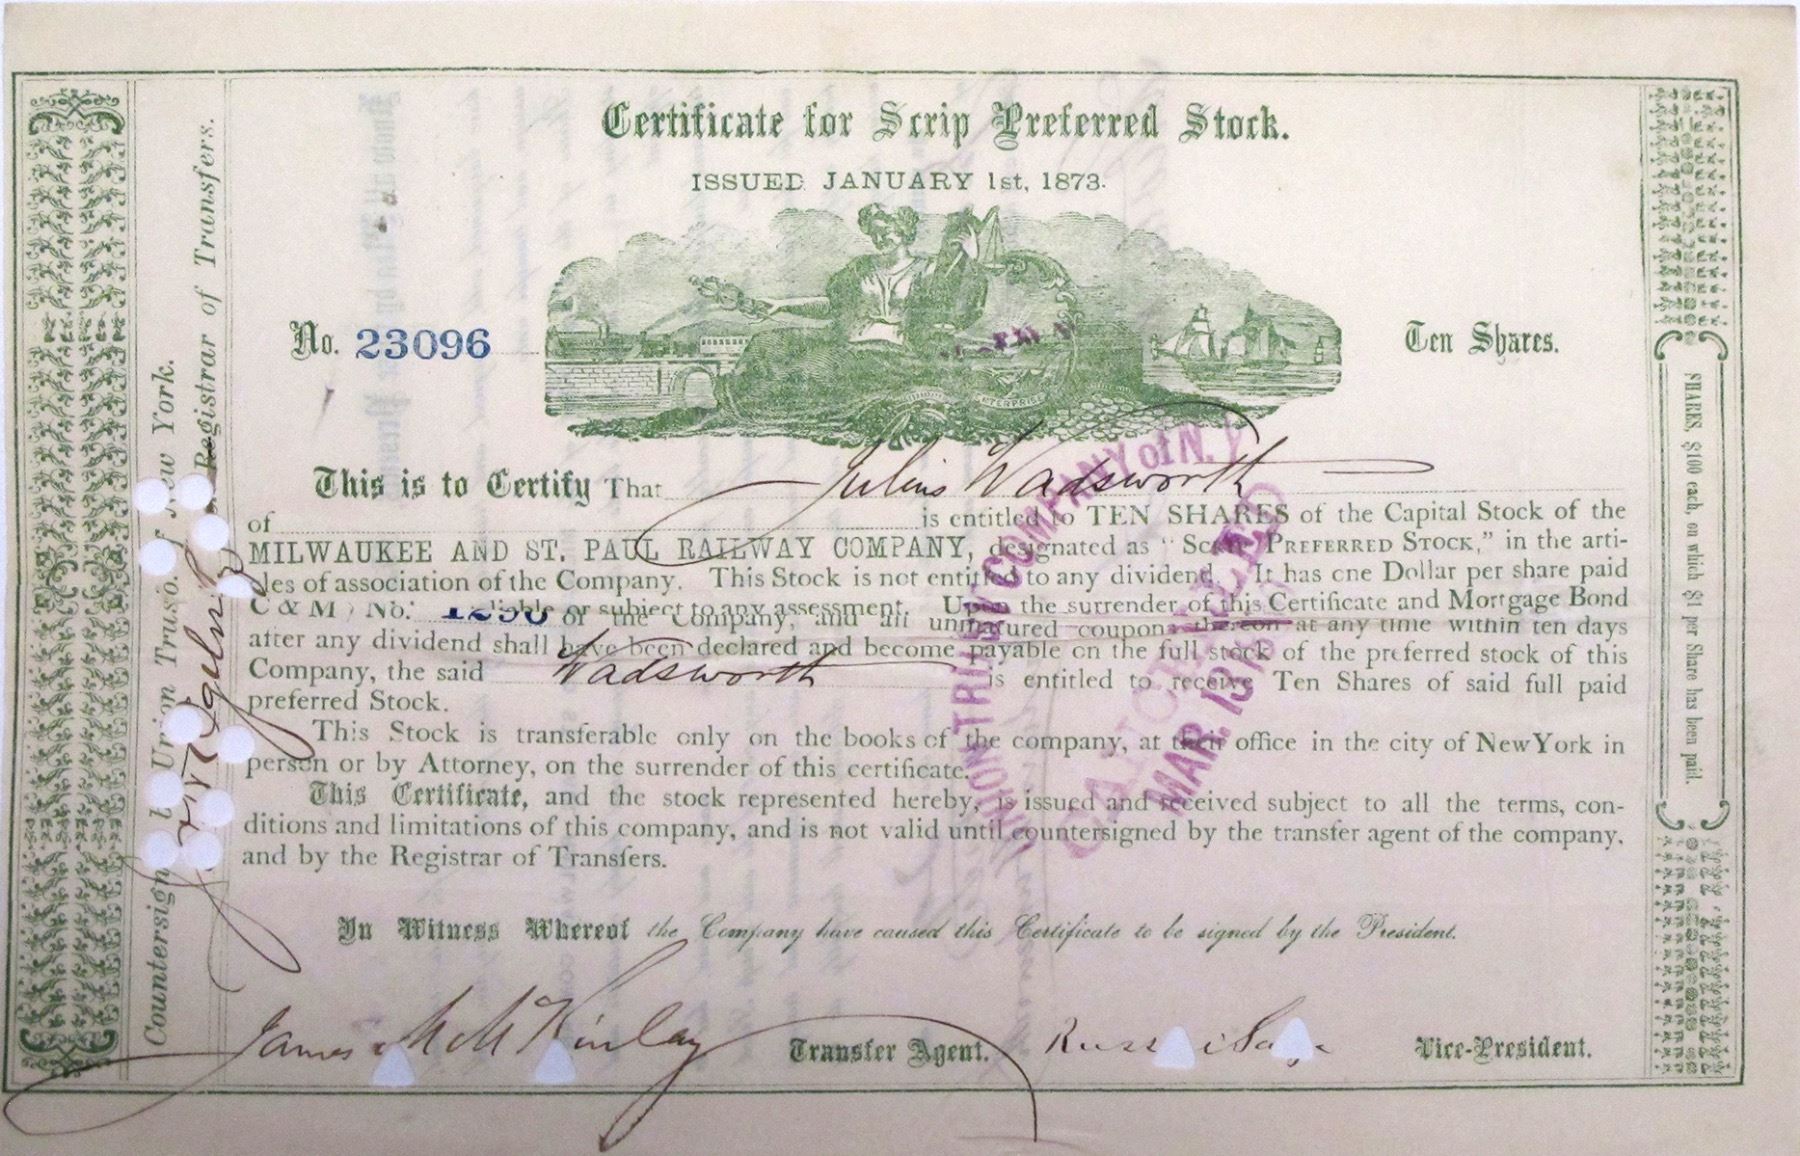 Certificate for Scrip Preferred Stock.
ISSUED JANUARY 1st, 1873.
No. 23096
Ten Shares.
ENTERPRISE
This is to Certify That Julius Wadsworth
of is entitled to TEN SHARES of the Capital Stock of the
MILWAUKEE AND ST. PAUL RAILWAY COMPANY, designated as "SCRIP PREFERRED STOCK," in the arti-
cles of association of the Company. This Stock is not entitled to any dividend. It has one Dollar per share paid
liable or subject to any assessment. Upon the surrender of this Certificate and Mortgage Bond
C & M) No. 1290 of the Company, and all unmatured coupons thereon at any time within ten days
after any dividend shall have been declared and become payable on the full stock of the preferred stock of this
Company, the said Wadsworth is entitled to receive Ten Shares of said full paid
preferred Stock.
This Stock is transferable only on the books of the company, at their office in the city of New York in
person or by Attorney, on the surrender of this certificate.
This Certificate, and the stock represented hereby, is issued and received subject to all the terms, con-
ditions and limitations of this company, and is not valid until countersigned by the transfer agent of the company,
and by the Registrar of Transfers.
In Witness Whereof the Company have caused this Certificate to be signed by the President.
James M McKinlay Transfer Agent. Russell Sage Vice-President.
Registrar of Transfers.
SHARES, $100 each, on which $1 per Share has been paid.
UNION TRUST COMPANY of N.Y
CANCELLED
MAR. 13